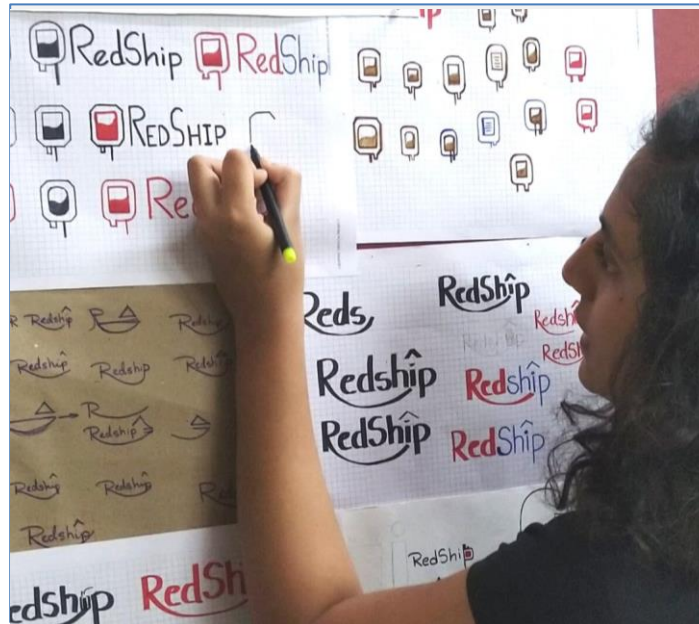 RedShip RedShip
REDSHIP
Re
Redship Redship
Redship Redship Redship
R
Redship
Redship Redship
Redship
Reds
RedShip
Redship Redship
RedShip RedShip
RedShip
edship RedSh